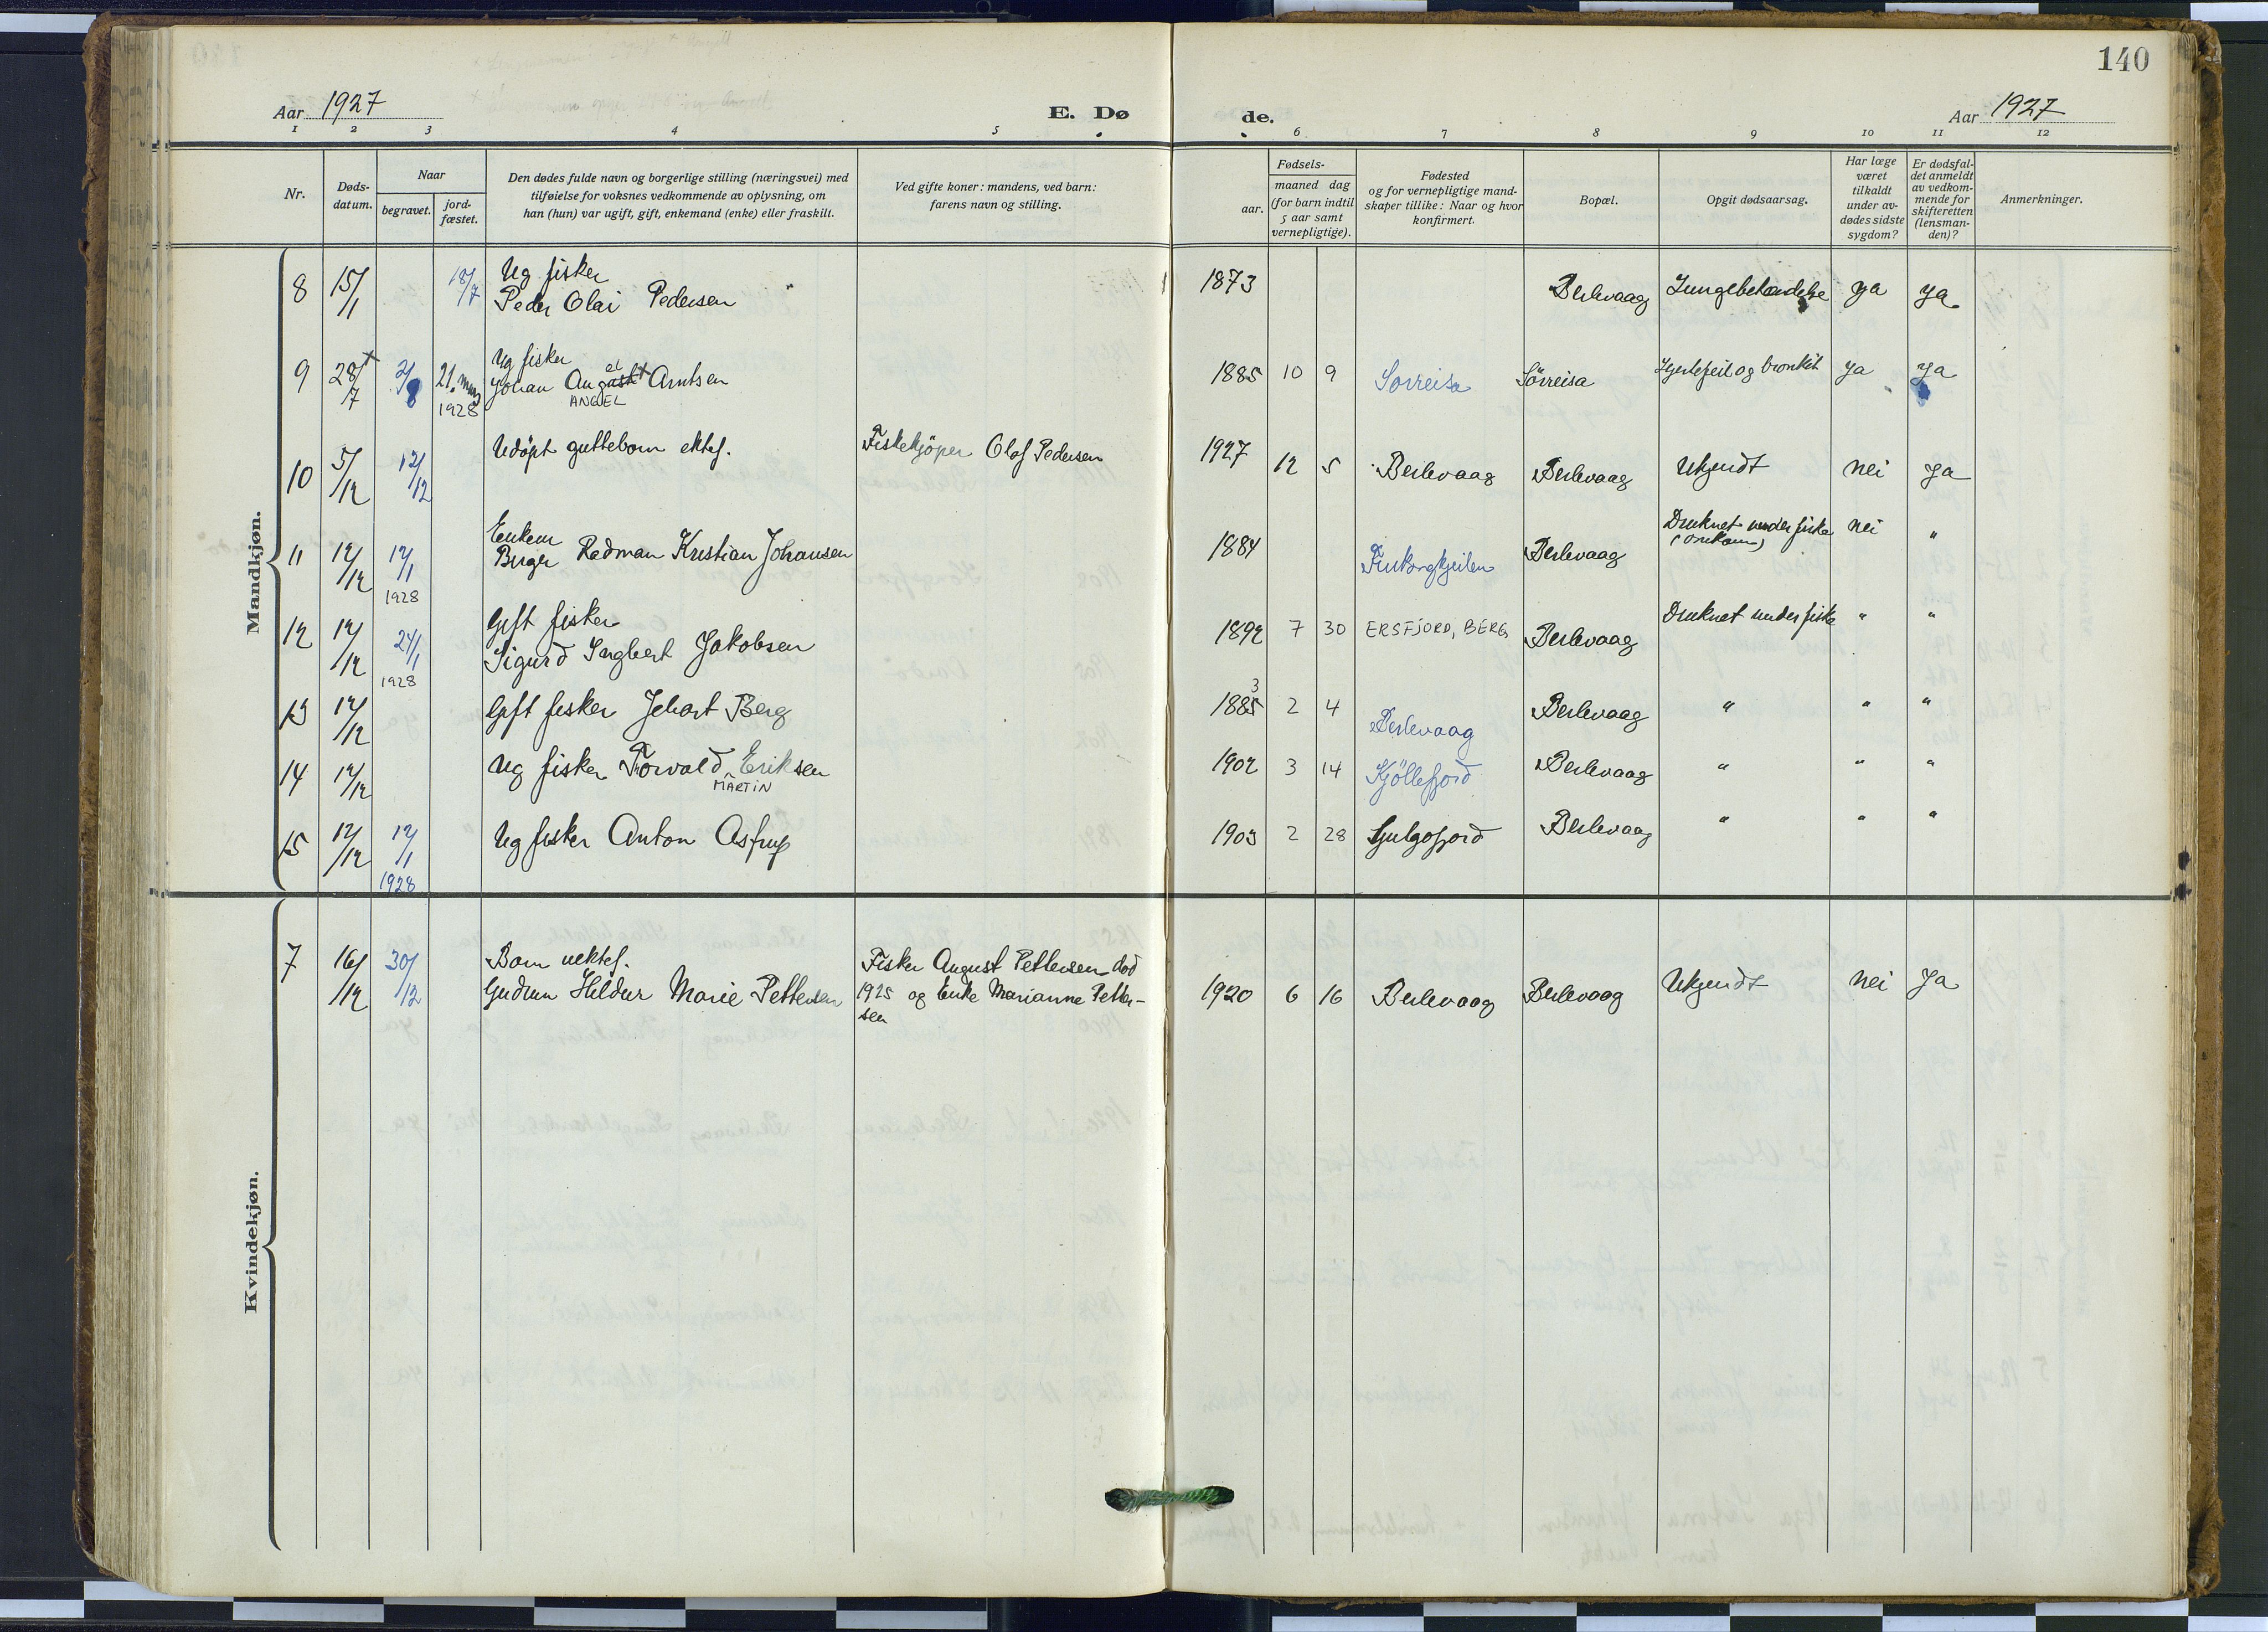 140
Aar 1927 E. Dø de. Aar 1927
1 2 3 4 5 6 7 8 9 10 11 12
Nr.
Døds-
datum.
Naar
begravet.
jord-
fæstet.
Den dødes fulde navn og borgerlige stilling (næringsvei) med
tilføielse for voksnes vedkommende av oplysning, om
han (hun) var ugift, gift, enkemand (enke) eller fraskilt.
Ved gifte koner: mandens, ved barn:
farens navn og stilling.
Fødsels-
aar.
maaned dag
(for barn indtil
5 aar samt
vernepligtige).
Fødested
og for vernepligtige mand-
skaper tillike: Naar og hvor
konfirmert.
Bopæl.
Opgit dødsaarsag.
Har læge
været
tilkaldt
under av-
dødes sidste
sygdom?
Er dødsfal-
det anmeldt
av vedkom-
mende for
skifteretten
(lensman-
den)?
Anmerkninger.
Mandkjøn.
8 15/1 18/7 Ug fisker
Peder Olai Pedersen 1873 Berlevaag Lungebetændelse ja ja
9 28/7 + 2/8 21. mars 1928 Ug fisker
Johan August + Arntsen
el
ANGEL
1885 10 9 Sorreisa Sörreisa Hjertefeil og bronkit ja ja
10 5/12 12/12 Udöpt guttebarn ektef. Fiskekjöper Olaf Pedersen 1927 12 5 Berlevaag Berlevaag Ukjendt nei ja
11 12/12 12/1 1928 Enkem
Birger Redman Kristian Johansen 1884 Berlevaag Druknet under fiske
(omkom) nei "
12 12/12 24/1 1928 Gift fisker
Sigurd Ingbert Jakobsen 1892 7 30 ERSFJORD, BERG Berlevaag Druknet under fiske " "
13 12/12 Gift fisker Jehart Berg 1885 3 2 4 Berlevaag Berlevaag " " "
14 12/12 Ug fisker Torvald Eriksen
MARTIN
1902 3 14 Kjöllefjord Berlevaag " " "
15 12/12 12/1 1928 Ug fisker Anton Astrup 1903 2 28 Berlevaag " " "
Kvindekjøn.
7 16/12 30/12 Barn uektef.
Gudrun Hildur Marie Pettersen
Fisker August Pettersen död
1925 og Enke Marianne Petter-
sen
1920 6 16 Berlevaag Berlevaag Ukjendt nei Ja